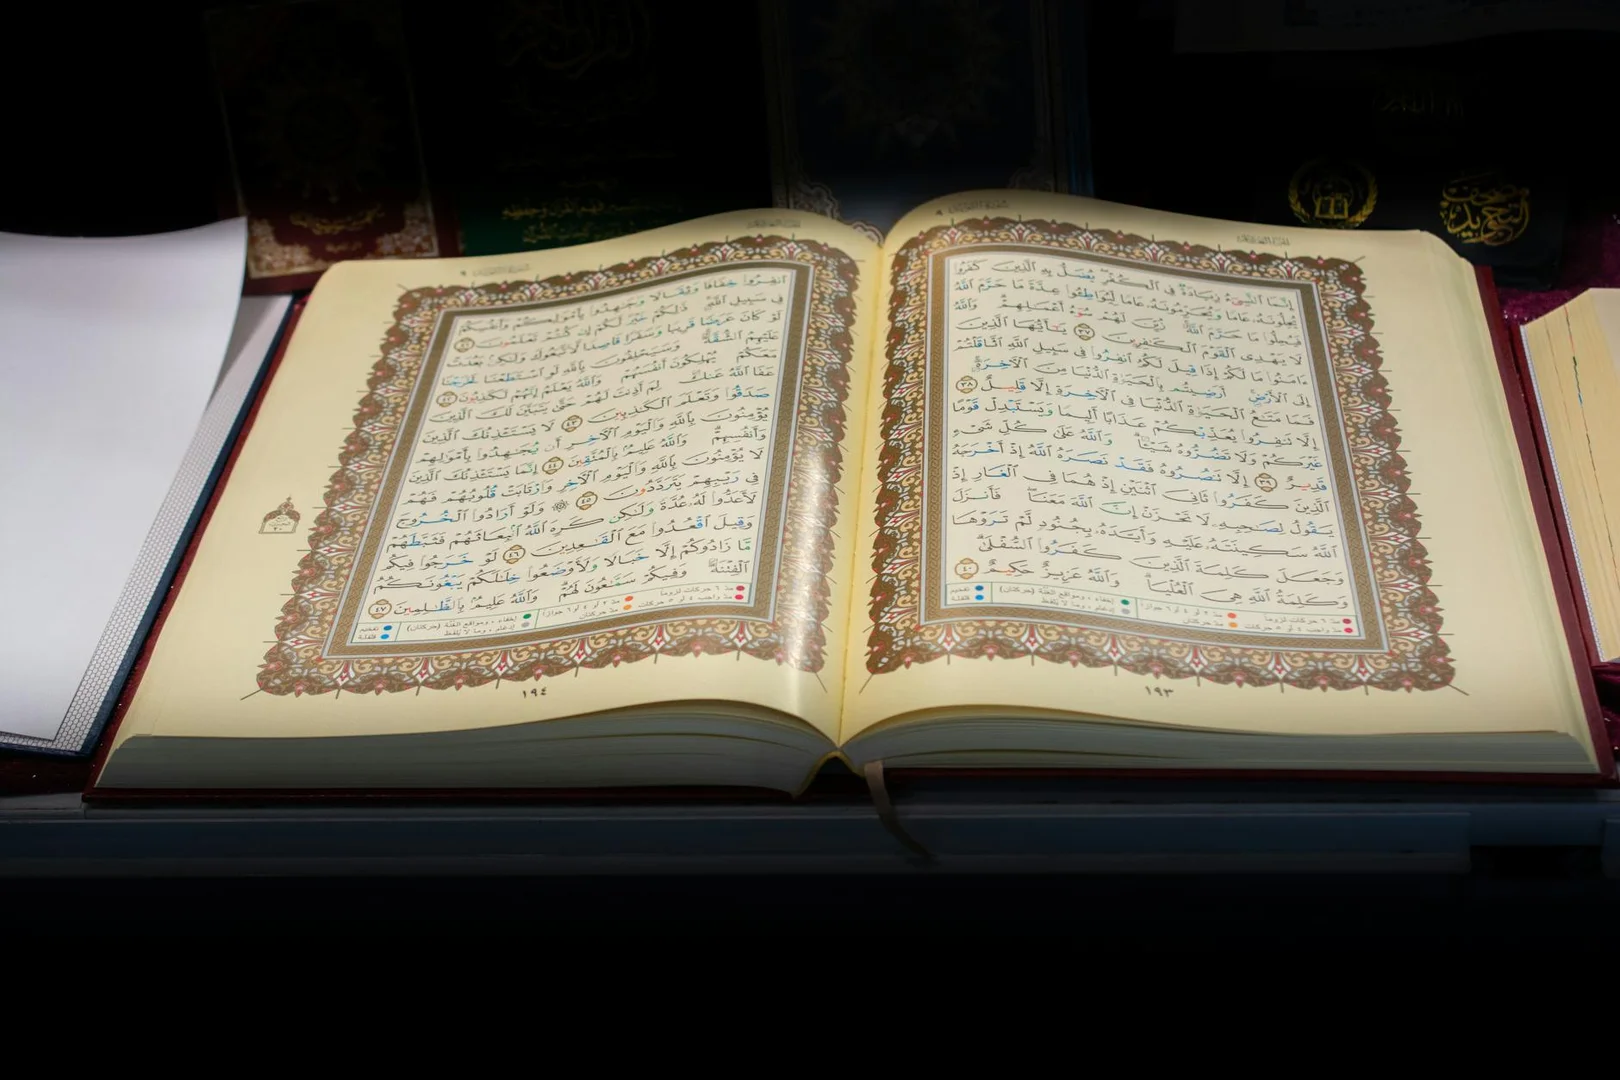 سُورَةُ التَّوۡبَةِ ٩
إِنَّمَا ٱلنَّسِيٓءُ زِيَادَةٞ فِي ٱلۡكُفۡرِۖ يُضَلُّ بِهِ ٱلَّذِينَ كَفَرُواْ
يُحِلُّونَهُۥ عَامٗا وَيُحَرِّمُونَهُۥ عَامٗا لِّيُوَاطِـُٔواْ عِدَّةَ مَا حَرَّمَ ٱللَّهُ
فَيُحِلُّواْ مَا حَرَّمَ ٱللَّهُۚ زُيِّنَ لَهُمۡ سُوٓءُ أَعۡمَٰلِهِمۡۗ وَٱللَّهُ
لَا يَهۡدِي ٱلۡقَوۡمَ ٱلۡكَٰفِرِينَ ٣٧ يَٰٓأَيُّهَا ٱلَّذِينَ
ءَامَنُواْ مَا لَكُمۡ إِذَا قِيلَ لَكُمُ ٱنفِرُواْ فِي سَبِيلِ ٱللَّهِ ٱثَّاقَلۡتُمۡ
إِلَى ٱلۡأَرۡضِۚ أَرَضِيتُم بِٱلۡحَيَوٰةِ ٱلدُّنۡيَا مِنَ ٱلۡأٓخِرَةِۚ
فَمَا مَتَٰعُ ٱلۡحَيَوٰةِ ٱلدُّنۡيَا فِي ٱلۡأٓخِرَةِ إِلَّا قَلِيلٌ ٣٨
إِلَّا تَنفِرُواْ يُعَذِّبۡكُمۡ عَذَابًا أَلِيمٗا وَيَسۡتَبۡدِلۡ قَوۡمًا
غَيۡرَكُمۡ وَلَا تَضُرُّوهُ شَيۡـٔٗاۗ وَٱللَّهُ عَلَىٰ كُلِّ شَيۡءٖ
قَدِيرٌ ٣٩ إِلَّا تَنصُرُوهُ فَقَدۡ نَصَرَهُ ٱللَّهُ إِذۡ أَخۡرَجَهُ
ٱلَّذِينَ كَفَرُواْ ثَانِيَ ٱثۡنَيۡنِ إِذۡ هُمَا فِي ٱلۡغَارِ إِذۡ
يَقُولُ لِصَٰحِبِهِۦ لَا تَحۡزَنۡ إِنَّ ٱللَّهَ مَعَنَاۖ فَأَنزَلَ
ٱللَّهُ سَكِينَتَهُۥ عَلَيۡهِ وَأَيَّدَهُۥ بِجُنُودٖ لَّمۡ تَرَوۡهَا
وَجَعَلَ كَلِمَةَ ٱلَّذِينَ كَفَرُواْ ٱلسُّفۡلَىٰۗ
وَكَلِمَةُ ٱللَّهِ هِيَ ٱلۡعُلۡيَاۗ وَٱللَّهُ عَزِيزٌ حَكِيمٌ ٤٠
مدّ ٦ حركات لزوماً مدّ ٢ أو ٤ أو ٦ جوازاً إخفاء، ومواقع الغُنَّة (حركتان) تفخيم
مدّ واجب ٤ أو ٥ حركات مدّ حركتان إدغام، وما لا يُلفَظ قلقلة
١٩٣
سُورَةُ التَّوۡبَةِ ٩
ٱنفِرُواْ خِفَافٗا وَثِقَالٗا وَجَٰهِدُواْ بِأَمۡوَٰلِكُمۡ وَأَنفُسِكُمۡ
فِي سَبِيلِ ٱللَّهِۚ ذَٰلِكُمۡ خَيۡرٞ لَّكُمۡ إِن كُنتُمۡ تَعۡلَمُونَ ٤١
لَوۡ كَانَ عَرَضٗا قَرِيبٗا وَسَفَرٗا قَاصِدٗا لَّٱتَّبَعُوكَ وَلَٰكِنۢ بَعُدَتۡ
عَلَيۡهِمُ ٱلشُّقَّةُۚ وَسَيَحۡلِفُونَ بِٱللَّهِ لَوِ ٱسۡتَطَعۡنَا لَخَرَجۡنَا
مَعَكُمۡ يُهۡلِكُونَ أَنفُسَهُمۡ وَٱللَّهُ يَعۡلَمُ إِنَّهُمۡ لَكَٰذِبُونَ ٤٢
عَفَا ٱللَّهُ عَنكَ لِمَ أَذِنتَ لَهُمۡ حَتَّىٰ يَتَبَيَّنَ لَكَ ٱلَّذِينَ
صَدَقُواْ وَتَعۡلَمَ ٱلۡكَٰذِبِينَ ٤٣ لَا يَسۡتَـٔۡذِنُكَ ٱلَّذِينَ
يُؤۡمِنُونَ بِٱللَّهِ وَٱلۡيَوۡمِ ٱلۡأٓخِرِ أَن يُجَٰهِدُواْ بِأَمۡوَٰلِهِمۡ
وَأَنفُسِهِمۡۗ وَٱللَّهُ عَلِيمُۢ بِٱلۡمُتَّقِينَ ٤٤ إِنَّمَا يَسۡتَـٔۡذِنُكَ ٱلَّذِينَ
لَا يُؤۡمِنُونَ بِٱللَّهِ وَٱلۡيَوۡمِ ٱلۡأٓخِرِ وَٱرۡتَابَتۡ قُلُوبُهُمۡ فَهُمۡ
فِي رَيۡبِهِمۡ يَتَرَدَّدُونَ ٤٥ ۞ وَلَوۡ أَرَادُواْ ٱلۡخُرُوجَ
لَأَعَدُّواْ لَهُۥ عُدَّةٗ وَلَٰكِن كَرِهَ ٱللَّهُ ٱنۢبِعَاثَهُمۡ فَثَبَّطَهُمۡ
وَقِيلَ ٱقۡعُدُواْ مَعَ ٱلۡقَٰعِدِينَ ٤٦ لَوۡ خَرَجُواْ فِيكُم
مَّا زَادُوكُمۡ إِلَّا خَبَالٗا وَلَأَوۡضَعُواْ خِلَٰلَكُمۡ يَبۡغُونَكُمُ
ٱلۡفِتۡنَةَ وَفِيكُمۡ سَمَّٰعُونَ لَهُمۡۗ وَٱللَّهُ عَلِيمُۢ بِٱلظَّٰلِمِينَ ٤٧
مدّ ٦ حركات لزوماً مدّ ٢ أو ٤ أو ٦ جوازاً إخفاء، ومواقع الغُنَّة (حركتان) تفخيم
مدّ واجب ٤ أو ٥ حركات مدّ حركتان إدغام، وما لا يُلفَظ قلقلة
١٩٤
مصحف التجويد